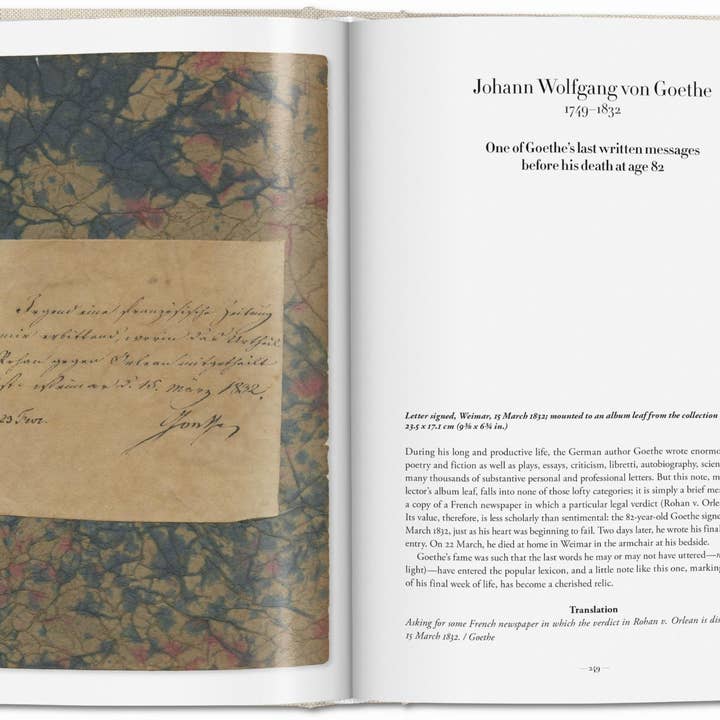 Irgend eine französische Zeitung
mir erbittend, worin das Urtheil
Rohan gegen Orlean mitgetheilt
ist. Weimar d. 15. März 1832.
23 Fevr.
Goethe
Johann Wolfgang von Goethe
1749–1832
One of Goethe's last written messages
before his death at age 82
Letter signed, Weimar, 15 March 1832; mounted to an album leaf from the collection
23.5 x 17.1 cm (9⅜ x 6¾ in.)
During his long and productive life, the German author Goethe wrote enorm
poetry and fiction as well as plays, essays, criticism, libretti, autobiography, scien
many thousands of substantive personal and professional letters. But this note, m
lector's album leaf, falls into none of those lofty categories; it is simply a brief mes
a copy of a French newspaper in which a particular legal verdict (Rohan v. Orle
Its value, therefore, is less scholarly than sentimental: the 82-year-old Goethe signe
March 1832, just as his heart was beginning to fail. Two days later, he wrote his final
entry. On 22 March, he died at home in Weimar in the armchair at his bedside.
Goethe's fame was such that the last words he may or may not have uttered—
light)—have entered the popular lexicon, and a little note like this one, marking
of his final week of life, has become a cherished relic.
Translation
Asking for some French newspaper in which the verdict in Rohan v. Orlean is dis
15 March 1832. / Goethe
—249—